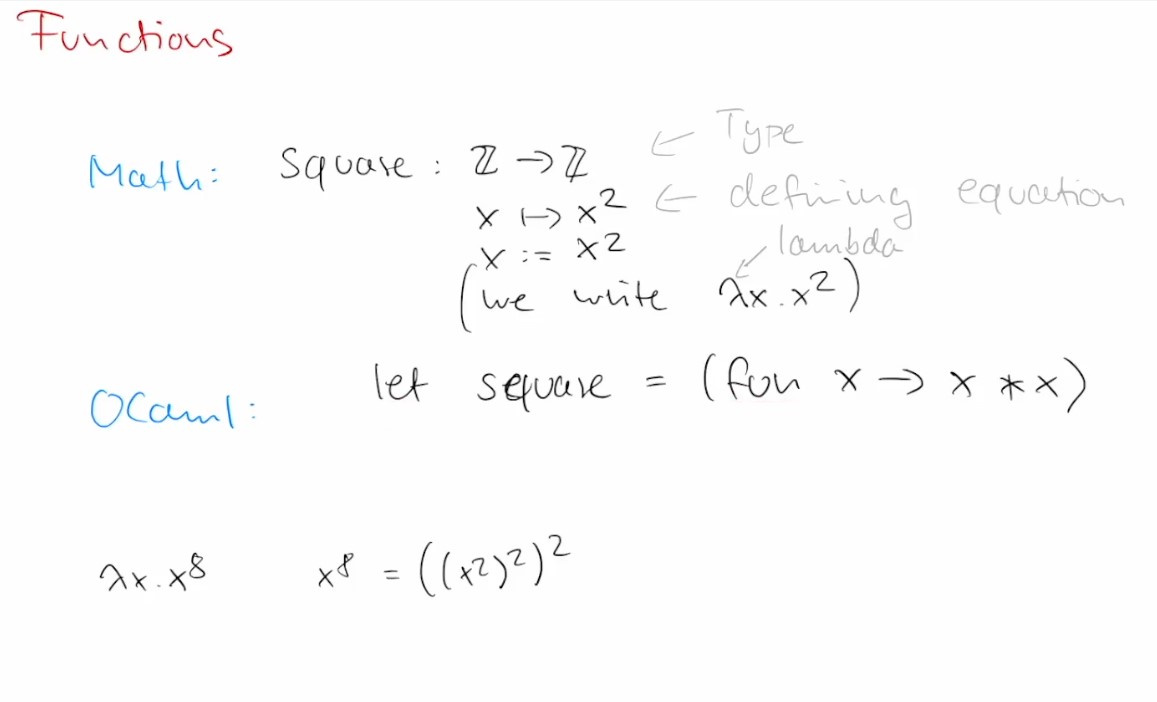 Functions
Math: Square : ℤ → ℤ ← Type
x ↦ x² ← defining equation
x := x² ↙ lambda
(we write λx.x²)
OCaml: let square = (fun x → x * x)
λx.x⁸ x⁸ = ((x²)²)²